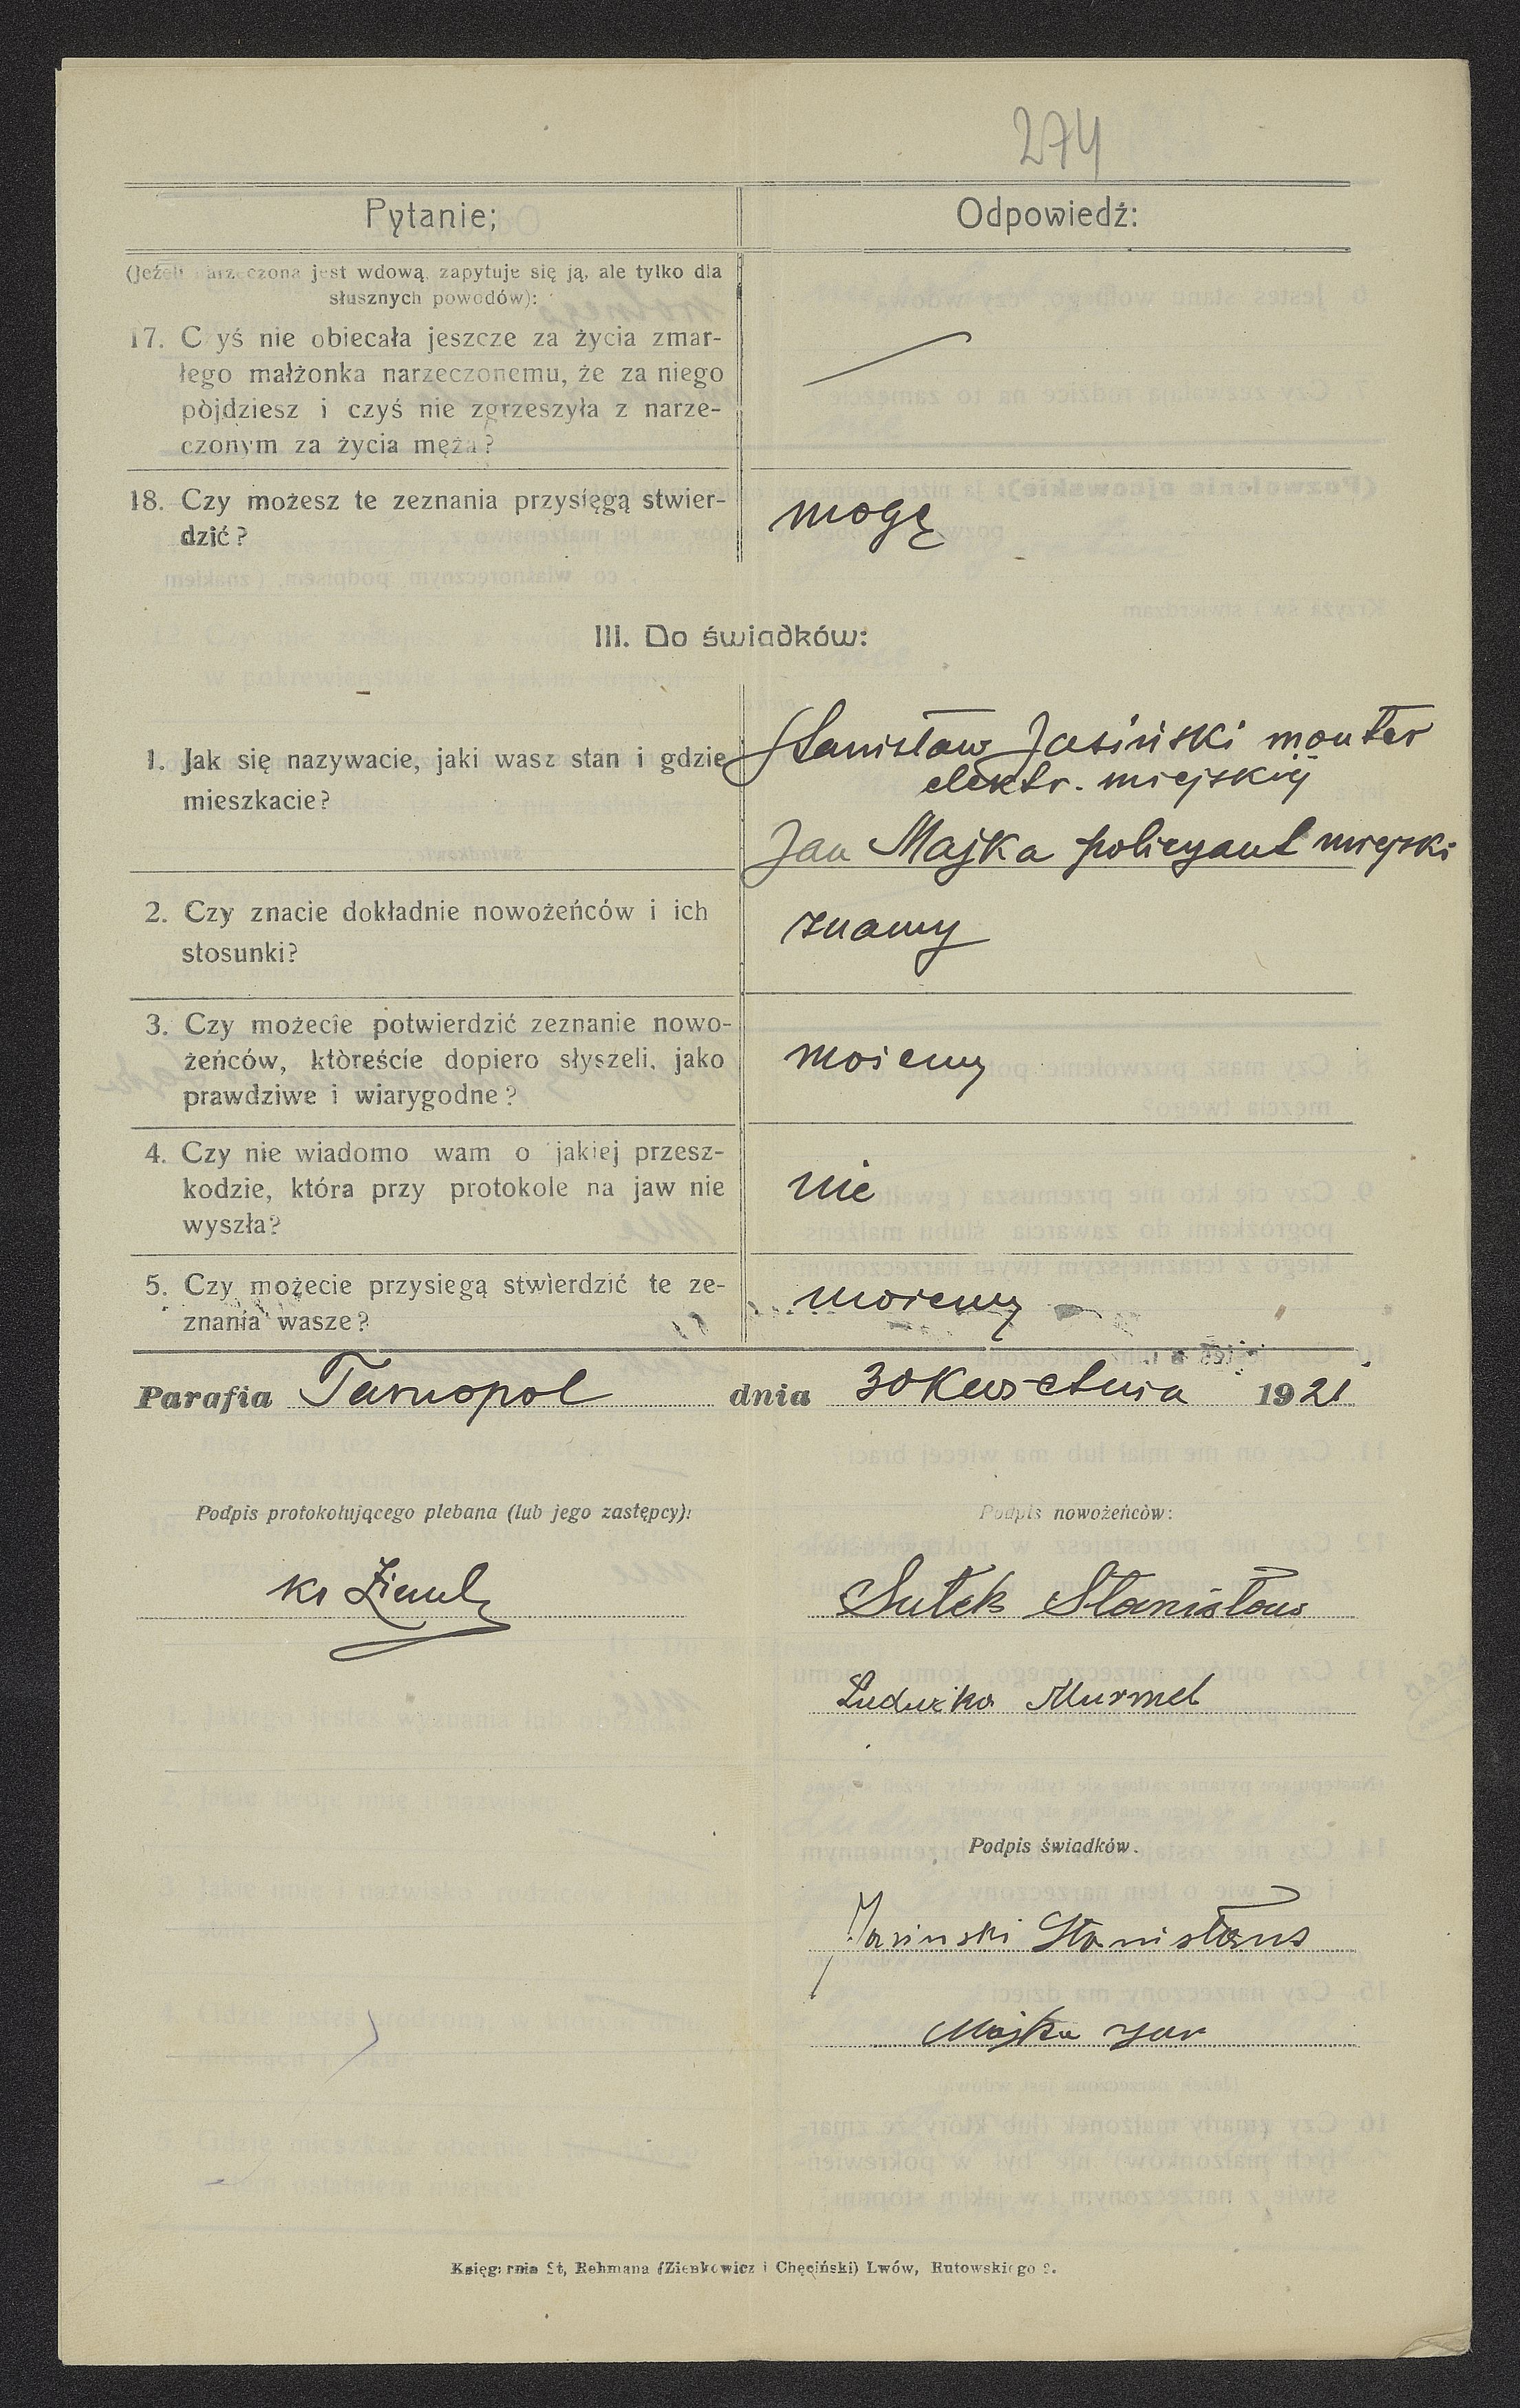 274
Pytanie;
Odpowiedź:
(Jeżeli narzeczona jest wdową, zapytuje się ją, ale tylko dla
słusznych powodów):
17. Czyś nie obiecała jeszcze za życia zmar-
łego małżonka narzeczonemu, że za niego
pòjdziesz i czyś nie zgrzeszyła z narze-
czonym za życia męża?
18. Czy możesz te zeznania przysięgą stwier-
dzić?
mogę
III. Do świadków:
1. Jak się nazywacie, jaki wasz stan i gdzie
mieszkacie?
Stanisław Jasiński monter
elektr. miejskiej
Jan Majka policyant miejski
2. Czy znacie dokładnie nowożeńców i ich
stosunki?
znamy
3. Czy możecie potwierdzić zeznanie nowo-
żeńców, któreście dopiero słyszeli, jako
prawdziwe i wiarygodne?
możemy
4. Czy nie wiadomo wam o jakiej przesz-
kodzie, która przy protokole na jaw nie
wyszła?
nie
5. Czy możecie przysiegą stwierdzić te ze-
znania wasze?
możemy
Parafia Tarnopol dnia 30 Kwietnia 1921
Podpis protokołującego plebana (lub jego zastępcy):
Podpis nowożeńców:
ks
Sutek Stanisław
Ludwika Murmel
Podpis świadków.
Jasinski Stanisław
Majka Jan
Księgarnia St, Rehmana (Zienkowicz i Chęciński) Lwów, Rutowskiego